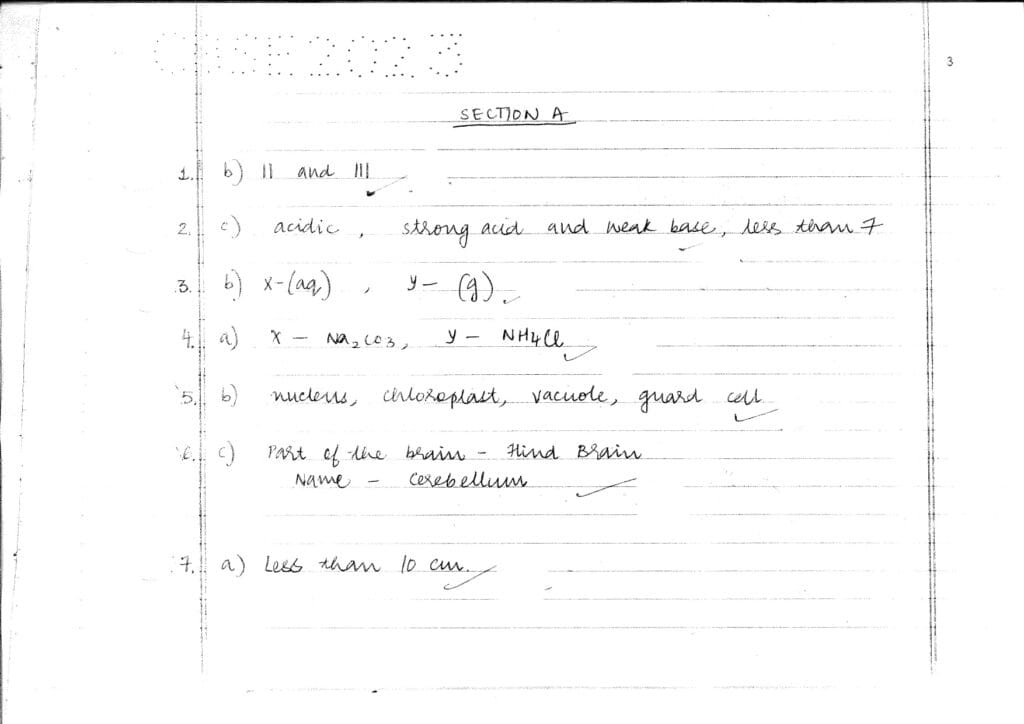 CBSE2023
3
SECTION A
1. b) II and III
2. c) acidic, strong acid and weak base, less than 7
3. b) x-(aq), y-(g)
4. a) x - Na2CO3, y - NH4Cl
5. b) nucleus, chloroplast, vacuole, guard cell
6. c) Part of the brain - Hind Brain
Name - Cerebellum
7. a) Less than 10 cm.